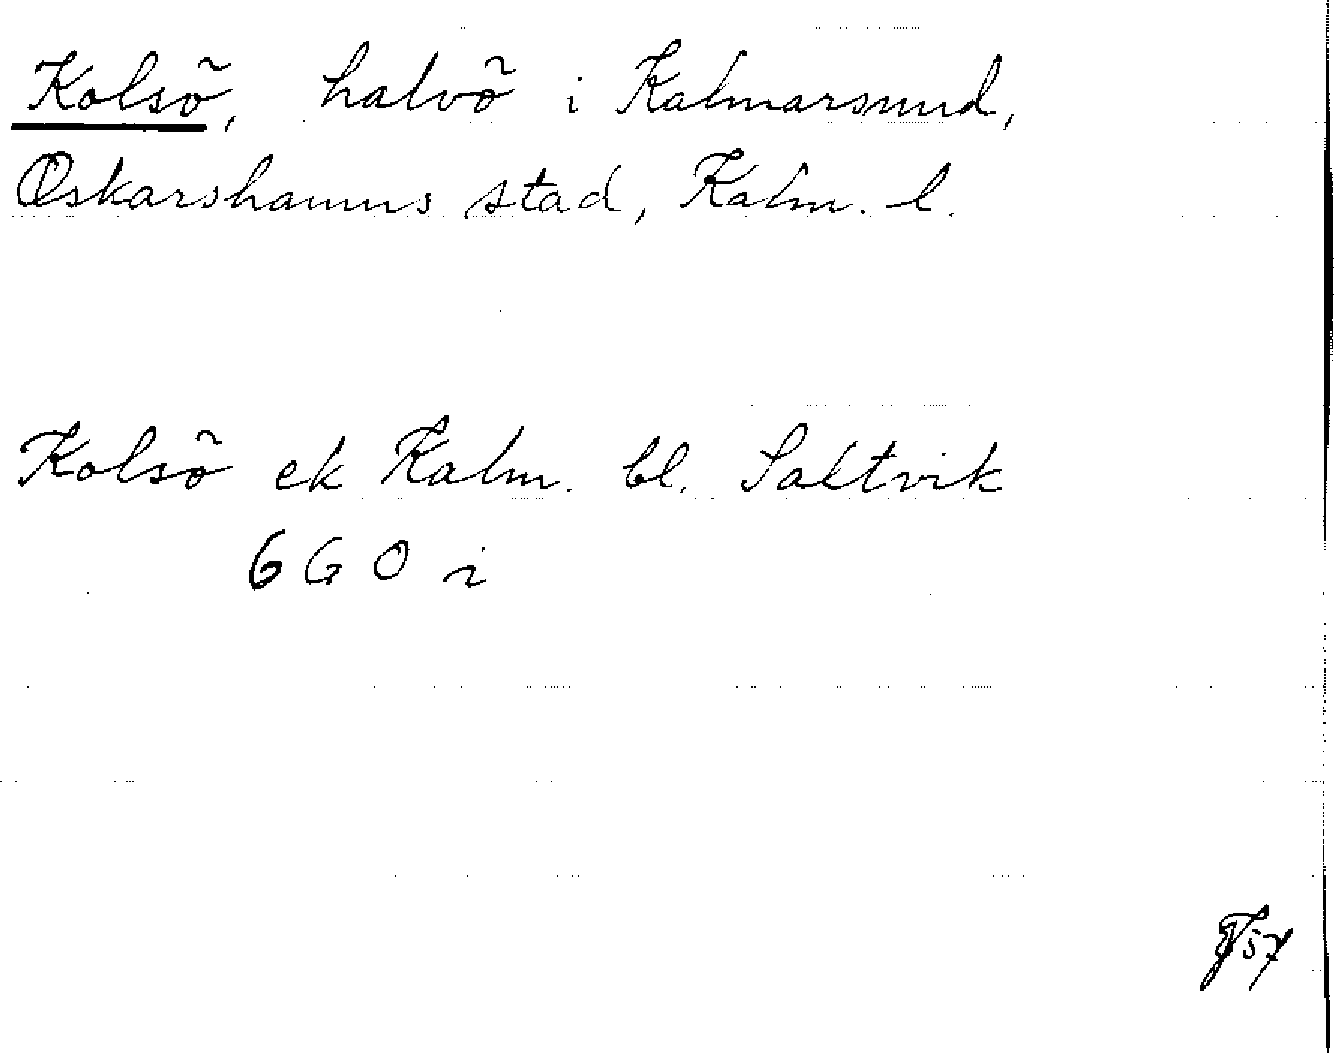 Kolsö, halvö i Kalmarsund,
Oskarshamns stad, Kalm. l.
Kolsö ek Kalm. bl. Saltvik
6 G O i
57